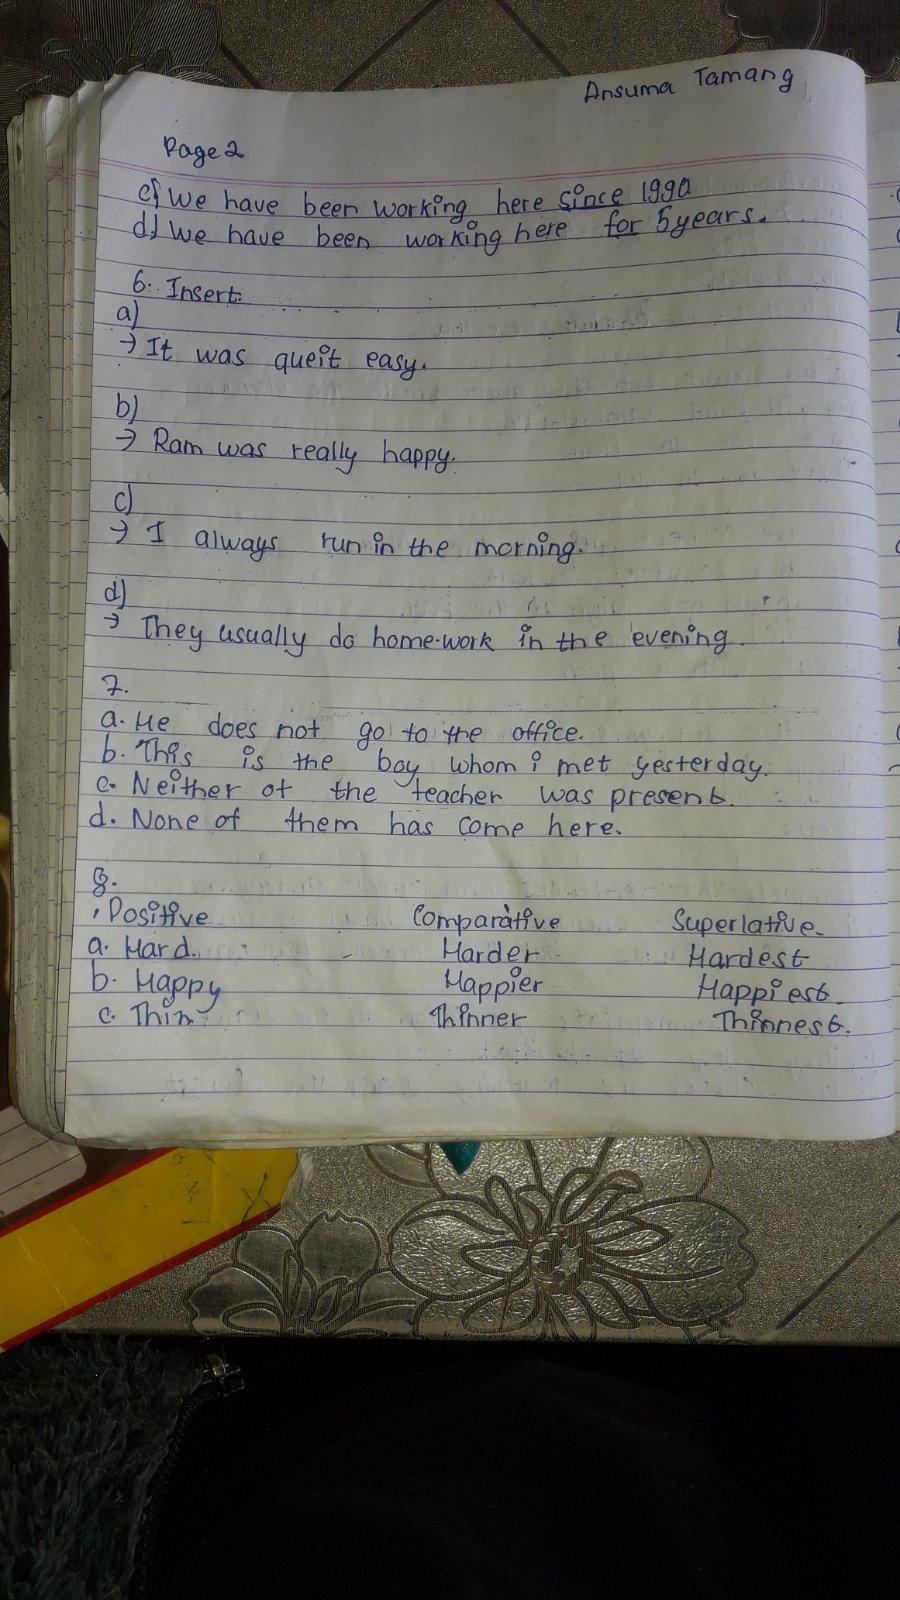 Ansuma Tamang
Page 2
c) We have been working here since 1990
d) We have been working here for 5 years.
6. Insert
a)
→ It was queit easy.
b)
→ Ram was really happy.
c)
→ I always run in the morning.
d)
→ They usually do home-work in the evening.
7.
a. He does not go to the office.
b. This is the boy whom i met yesterday.
c. Neither of the teacher was present.
d. None of them has come here.
8.
Positive Comparative Superlative.
a. Hard. Harder Hardest
b. Happy Happier Happiest.
c. Thin Thinner Thinnest.